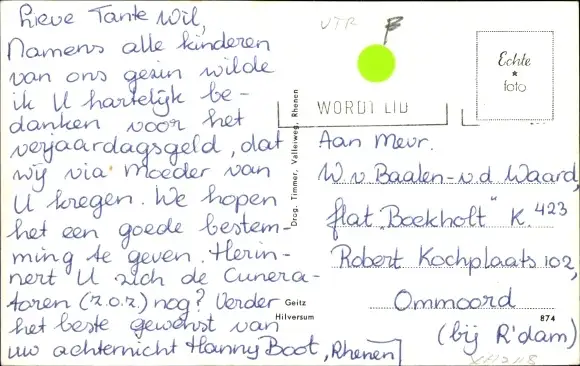 Lieve Tante Wil,
Namens alle kinderen
van ons gezin wilde
ik U hartelijk be-
danken voor het
verjaardagsgeld, dat
wij via Moeder van
U kregen. We hopen
het een goede bestem-
ming te geven. Herin-
nert U zich de Cunera-
toren (z.o.z.) nog? Verder
het beste gewenst van
uw achternicht Hanny Boot, Rhenen
Drog. Timmer, Valleiweg, Rhenen
Geitz
Hilversum
VTR
F
WORDT LID
Echte
*
foto
Aan Mevr.
W. v. Baalen-v.d. Waard,
flat „Boekholt" K. 423
Robert Kochplaats 102,
Ommoord
(bij R'dam)
874